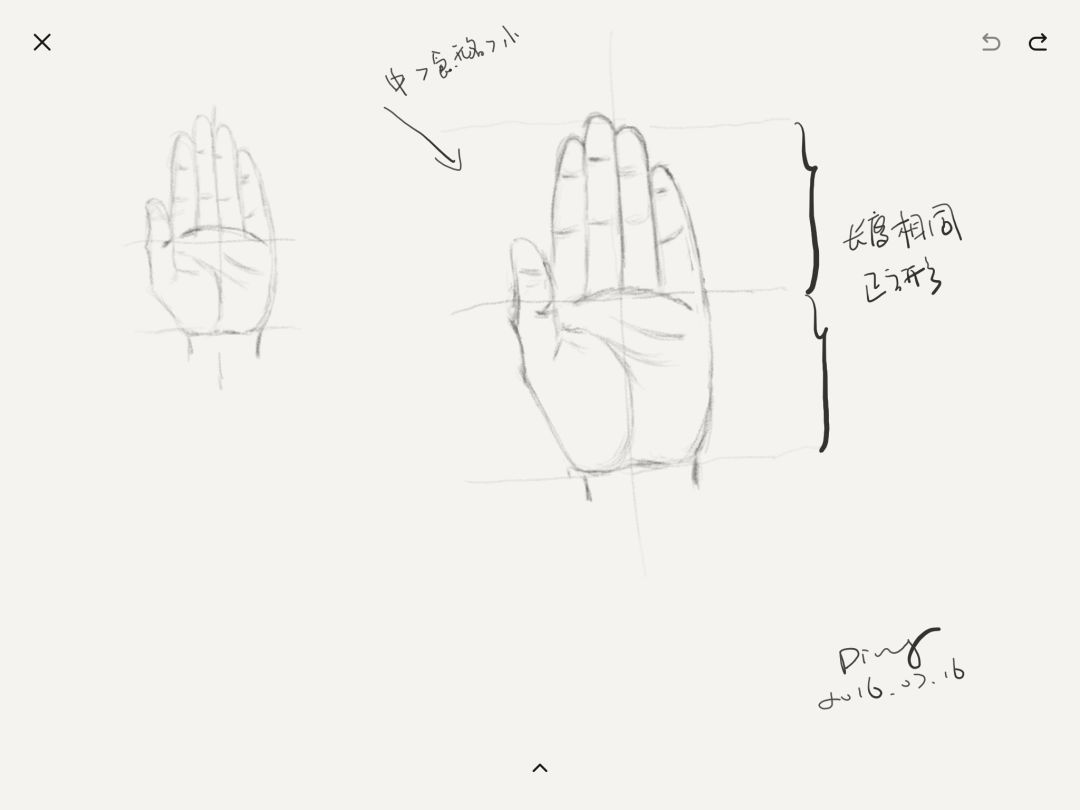 中>食无名>小
长度相同
正方形
Ding
2016.07.16